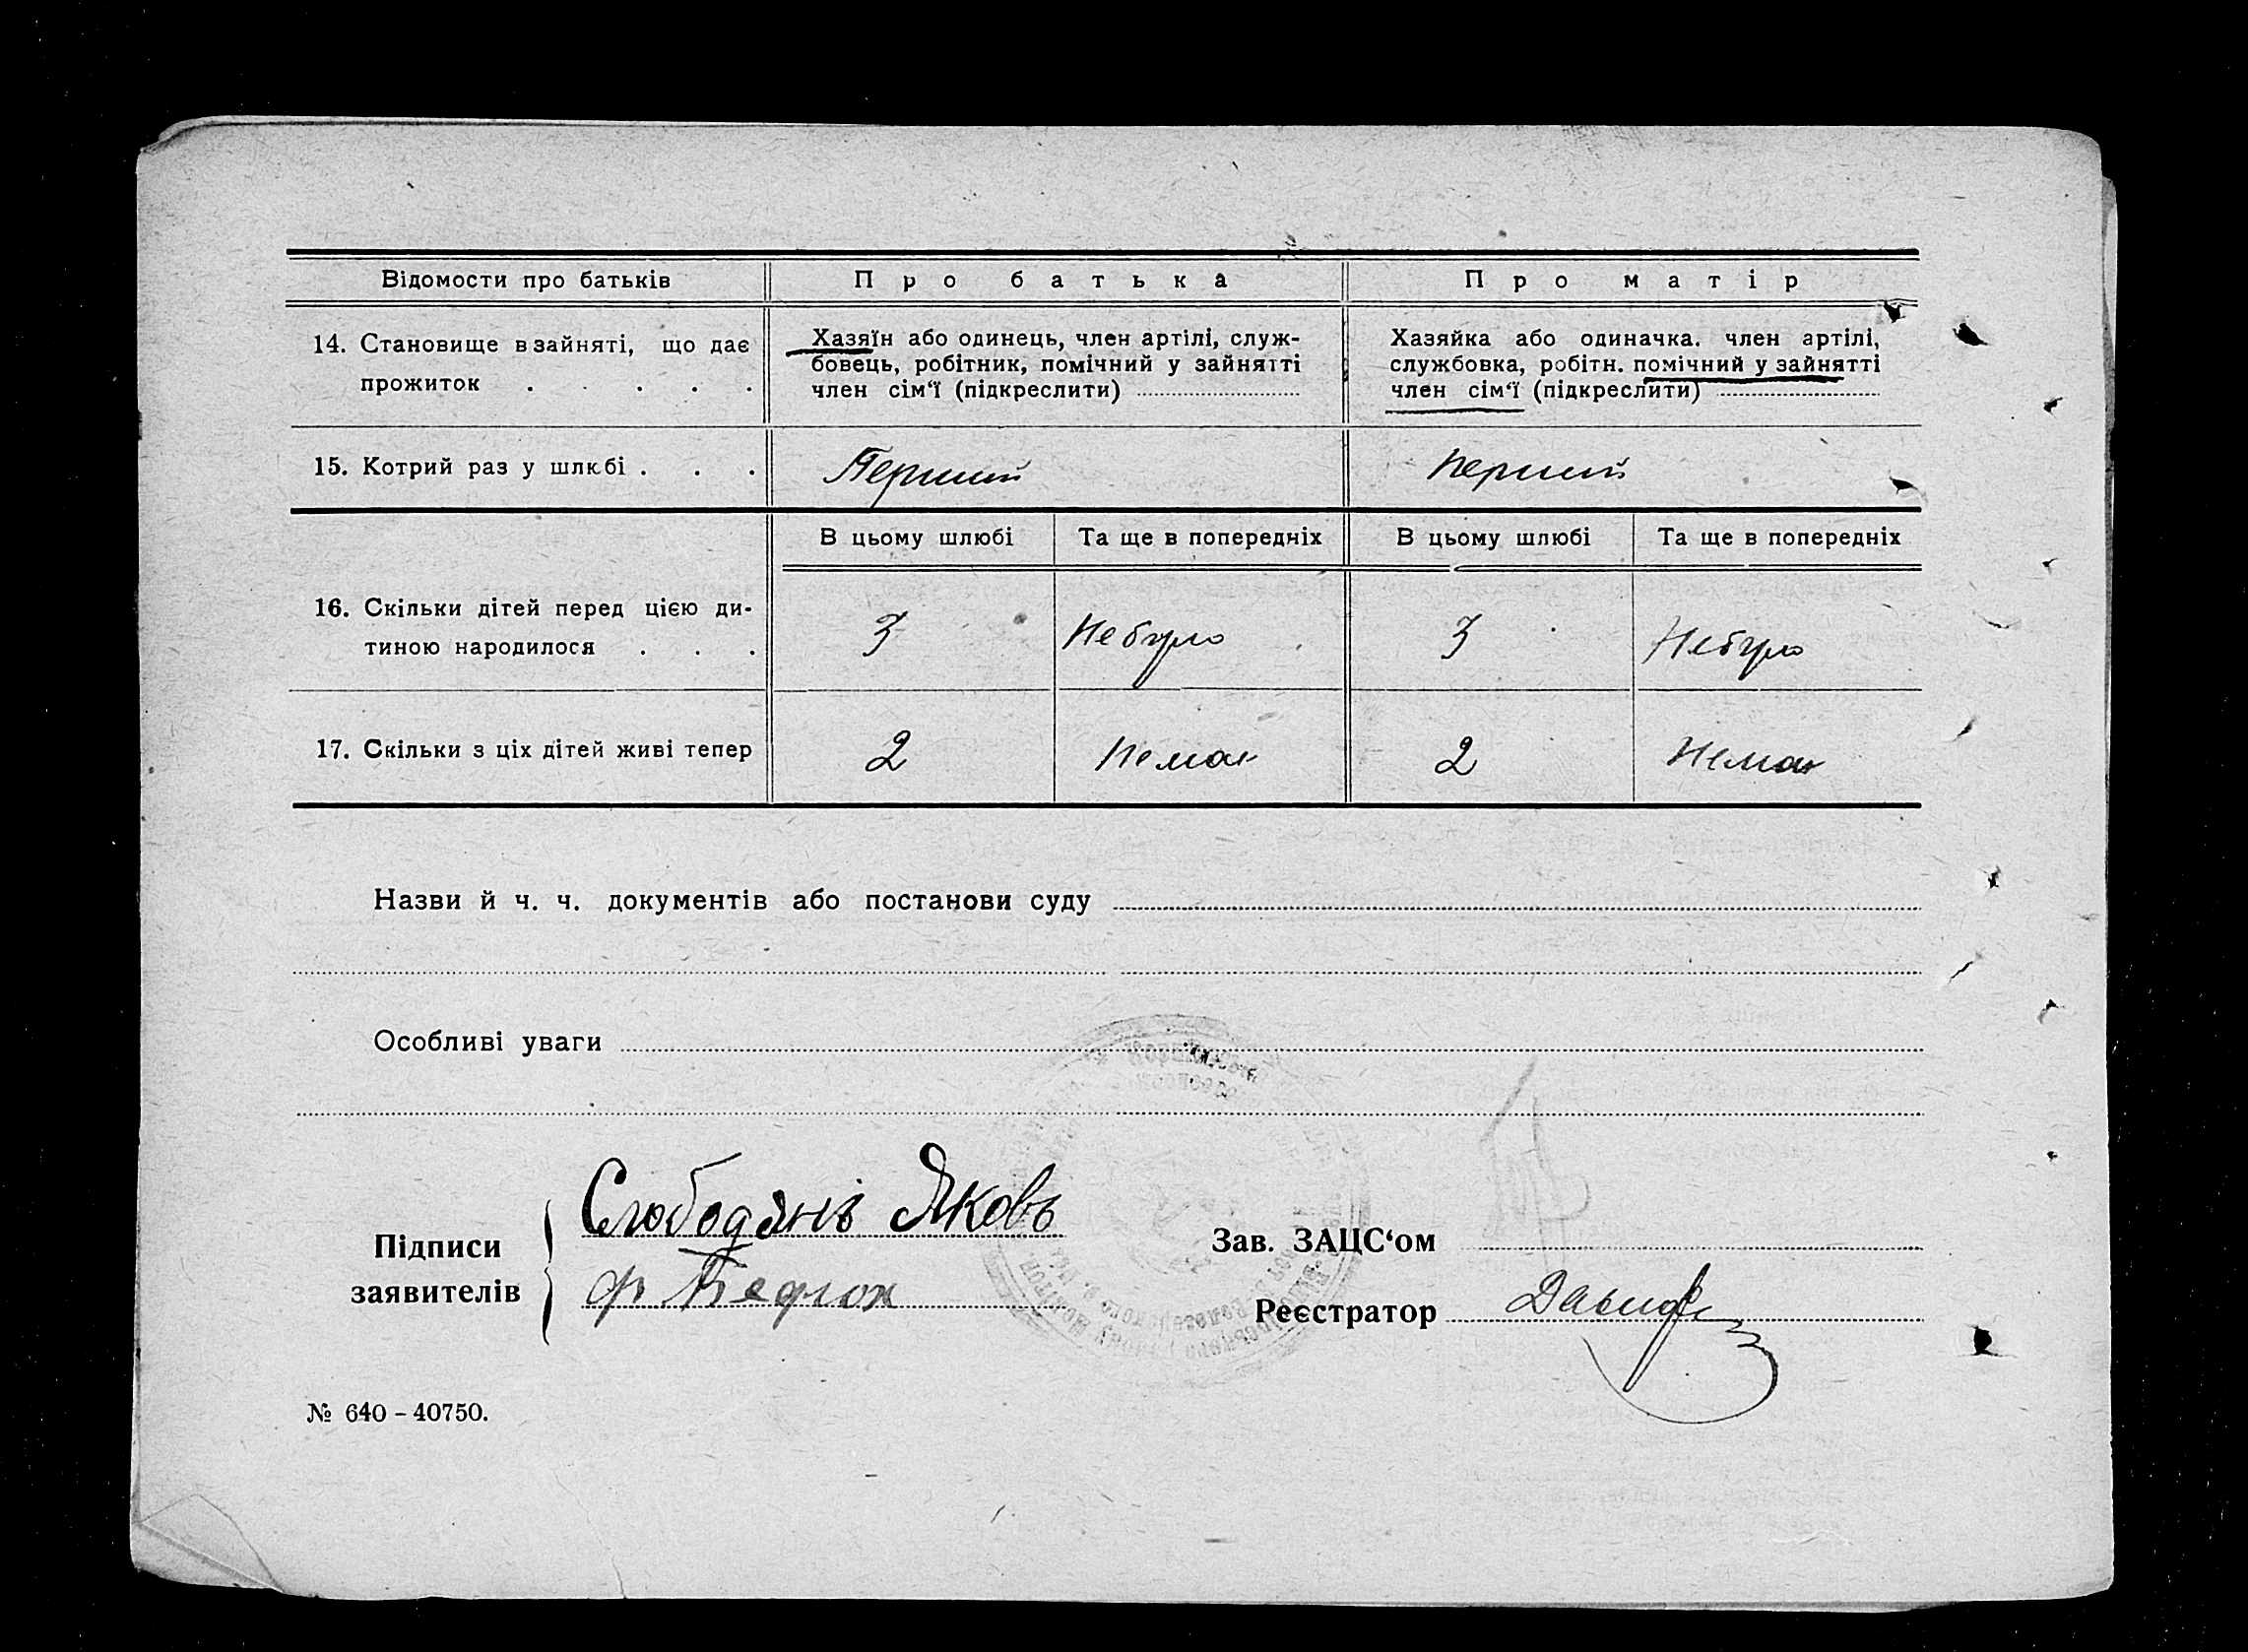 Відомости про батьків Про батька Про матір
14. Становище в зайняті, що дає
прожиток . . . . .
Хазяїн або одинець, член артілі, служ-
бовець, робітник, помічний у зайнятті
член сім‘ї (підкреслити)
Хазяйка або одиначка. член артілі,
службовка, робітн. помічний у зайнятті
член сім‘ї (підкреслити)
15. Котрий раз у шлюбі . . . Перший Перший
В цьому шлюбі Та ще в попередніх В цьому шлюбі Та ще в попередніх
16. Скільки дітей перед цією ди-
тиною народилося . . .
3 Небуло 3 Небуло
17. Скільки з ціх дітей живі тепер 2 Немає 2 Немає
Назви й ч. ч. документів або постанови суду
Особливі уваги
Підписи
заявителів
Яковъ
Зав. ЗАЦС‘ом
Реєстратор
№ 640 – 40750.